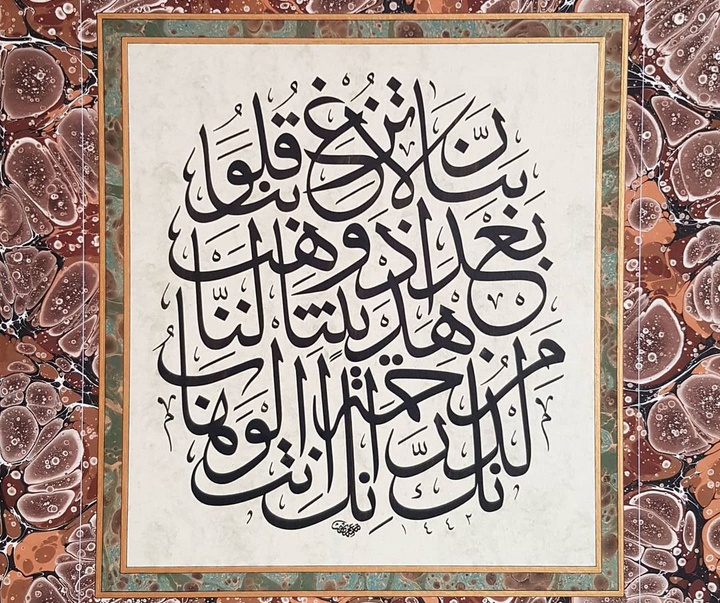 رَبَّنَا لَا تُزِغْ قُلُوبَنَا
بَعْدَ إِذْ هَدَيْتَنَا وَهَبْ لَنَا
مِنْ لَدُنْكَ رَحْمَةً إِنَّكَ أَنْتَ الْوَهَّابُ
١٤٤٢